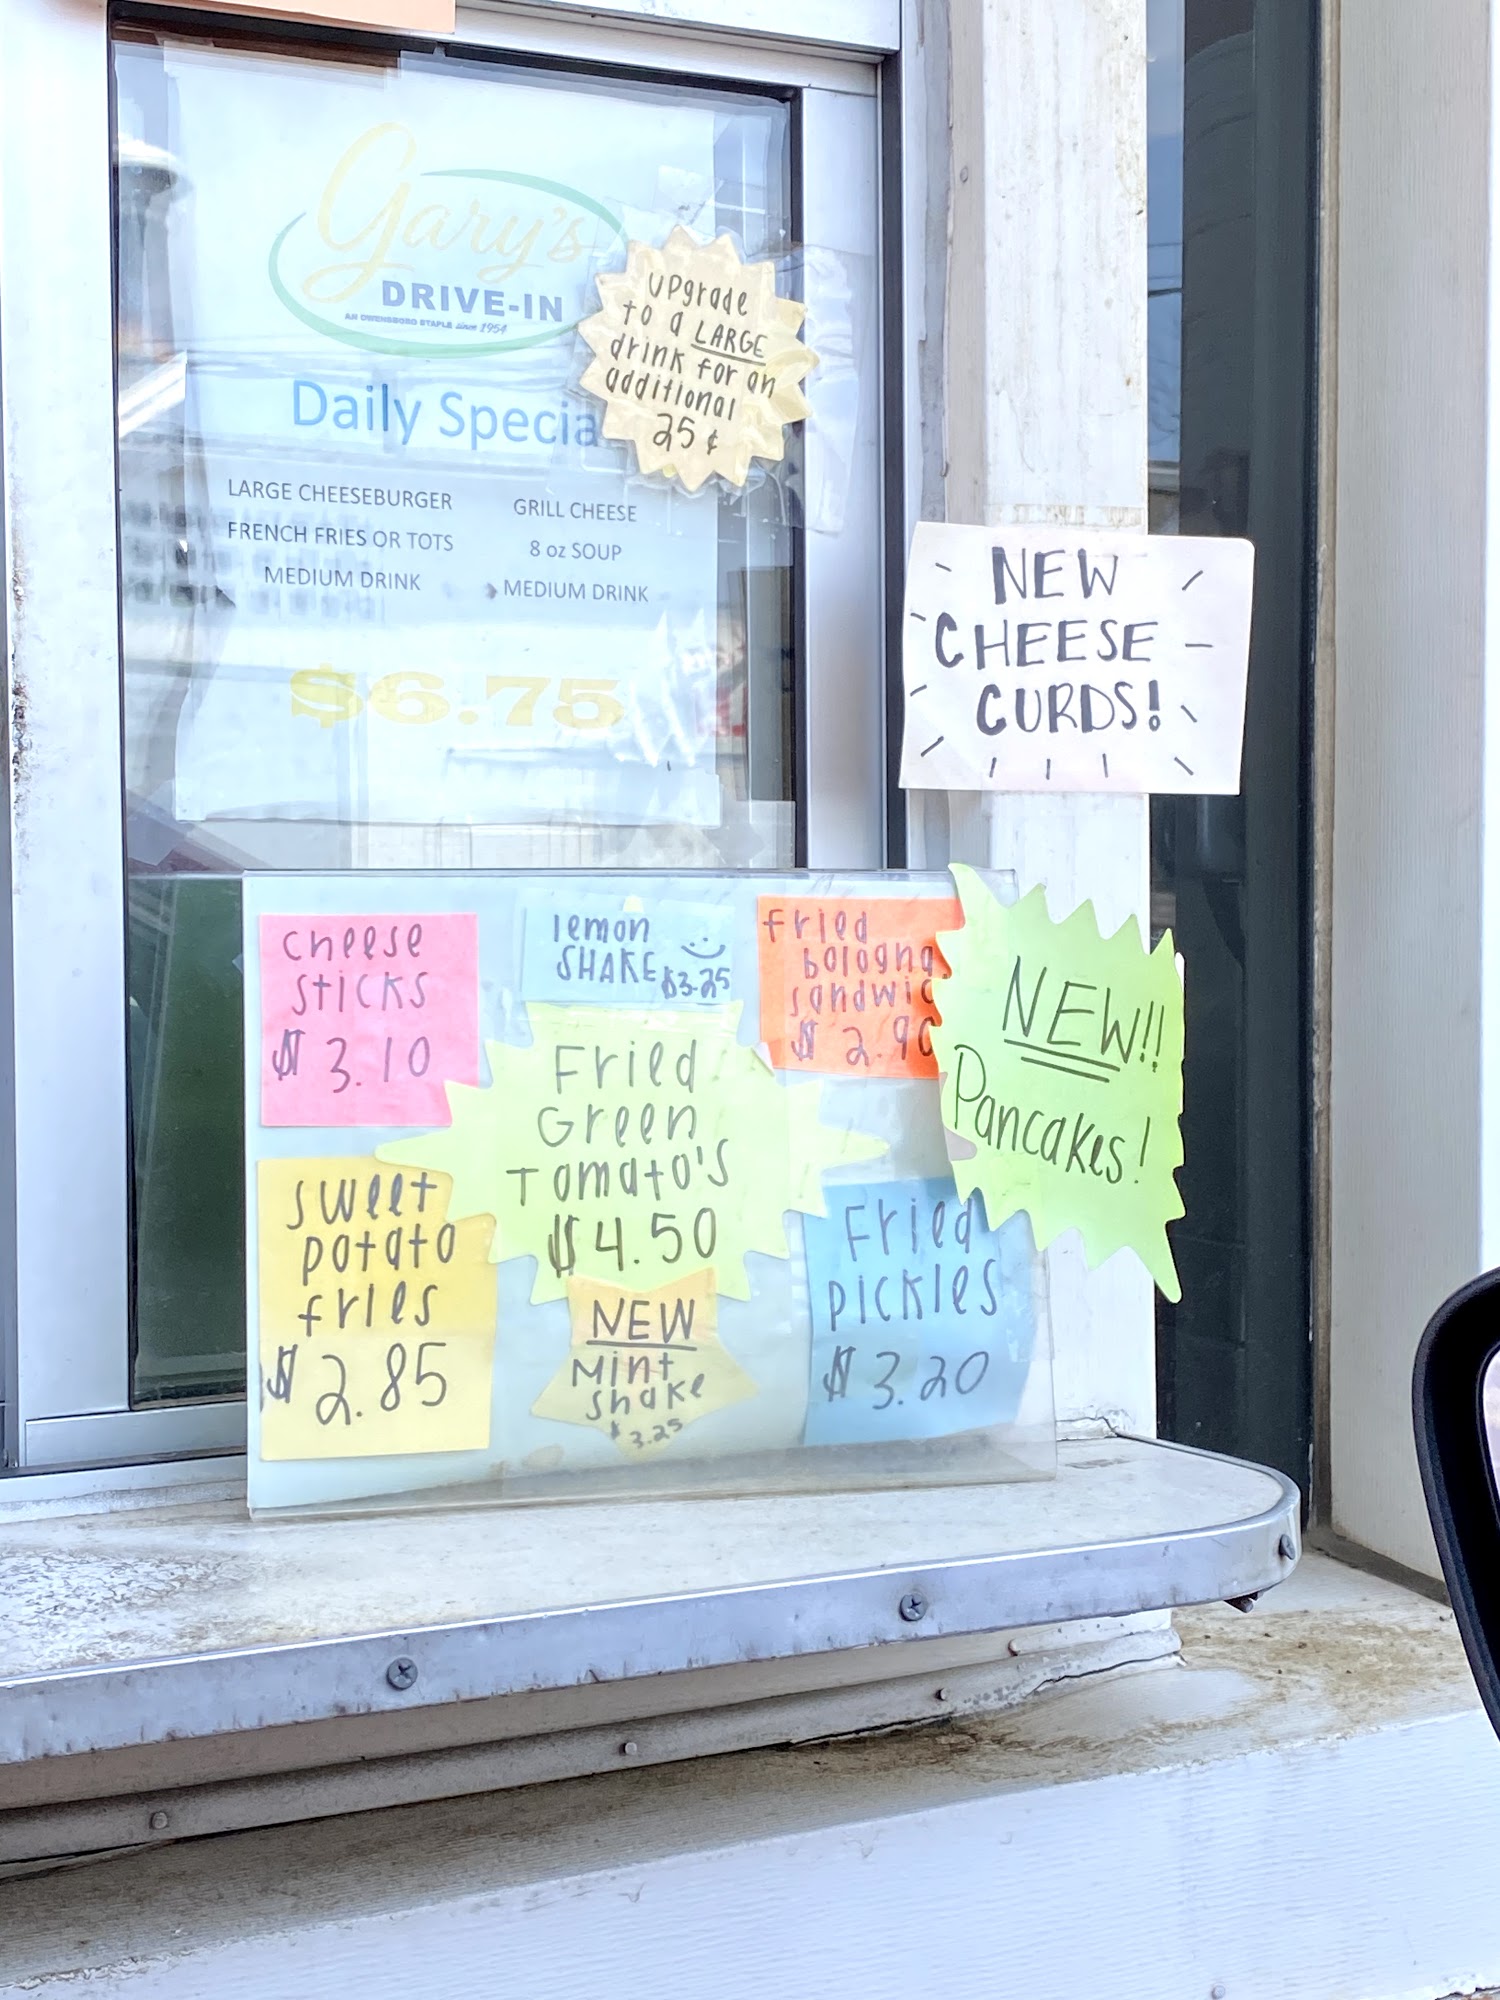 Gary's
DRIVE-IN
AN OWENSBORO STAPLE since 1954
Daily Specia
UPgrade
to a LARGE
drink for an
additional
25¢
LARGE CHEESEBURGER
FRENCH FRIES OR TOTS
MEDIUM DRINK
GRILL CHEESE
8 oz SOUP
MEDIUM DRINK
$6.75
NEW
CHEESE
CURDS!
Cheese
sticks
$3.10
lemon
SHAKE $3.25
Fried
bologna
sandwic
$2.90
NEW!!
Pancakes!
Fried
Green
Tomato's
$4.50
sweet
potato
fries
$2.85
NEW
Mint
Shake
$3.25
Fried
pickles
$3.20